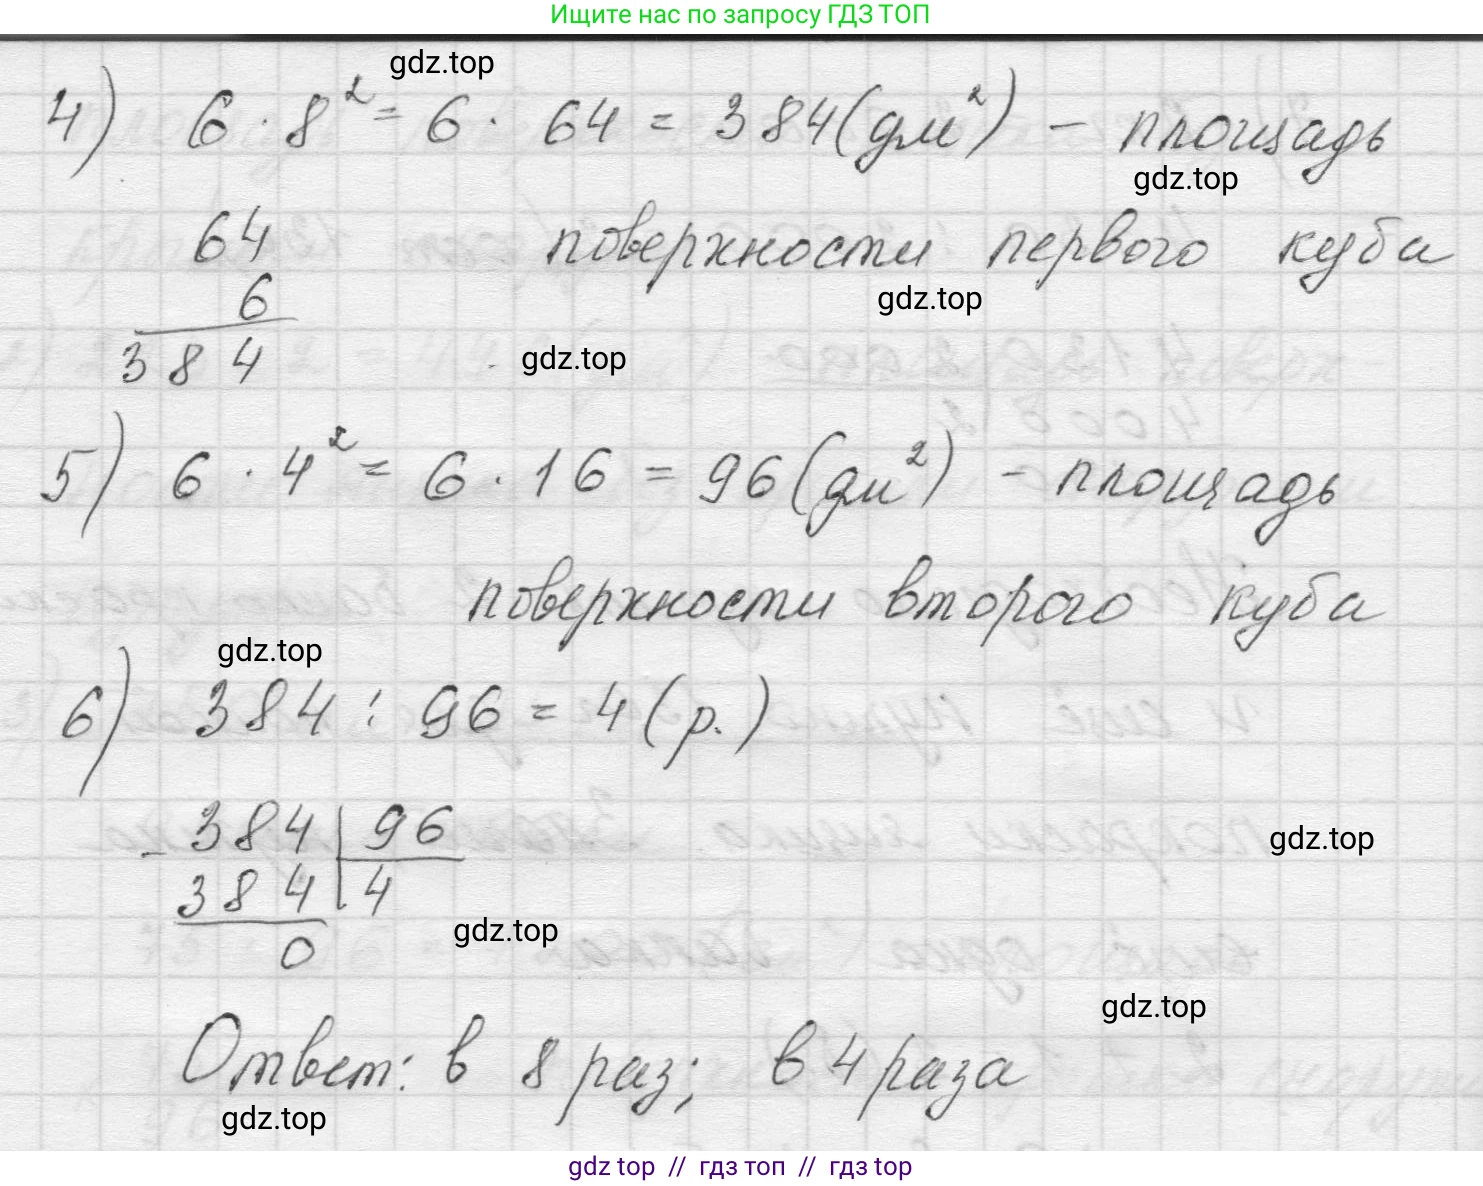 Ищите нас по запросу ГДЗ ТОП
gdz.top
4) 6 · 8² = 6 · 64 = 384 (дм²) – площадь
gdz.top
64 поверхности первого куба
6
gdz.top
384
gdz.top
5) 6 · 4² = 6 · 16 = 96 (дм²) – площадь
поверхности второго куба
gdz.top
6) 384 : 96 = 4 (р.)
– 384 | 96
gdz.top
384 | 4
gdz.top
0
gdz.top
Ответ: в 8 раз; в 4 раза
gdz.top
gdz top // гдз топ // гдз top